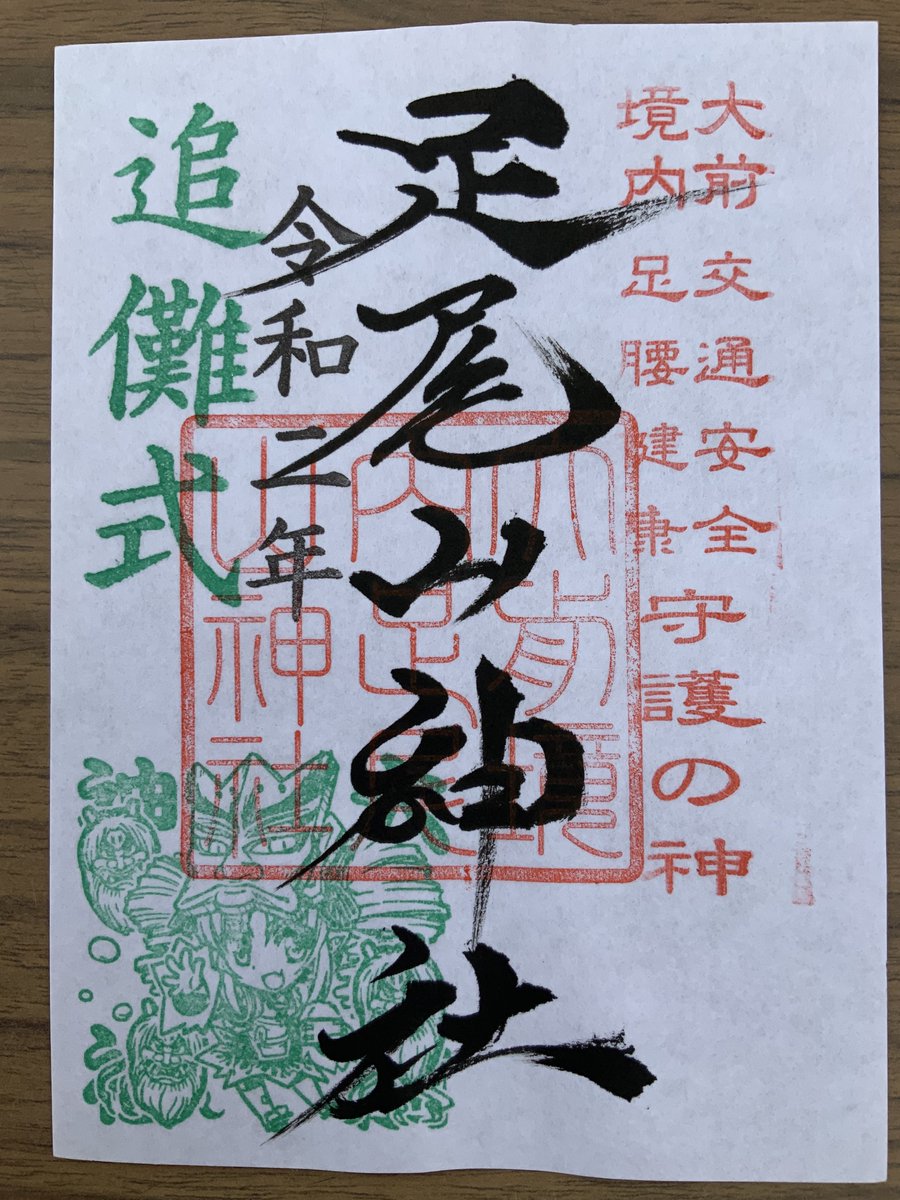 大前 交通安全
境内 足腰健康
守護の神
足尾山神社
大前境
内足尾
山神社
令和二年
追儺式
神